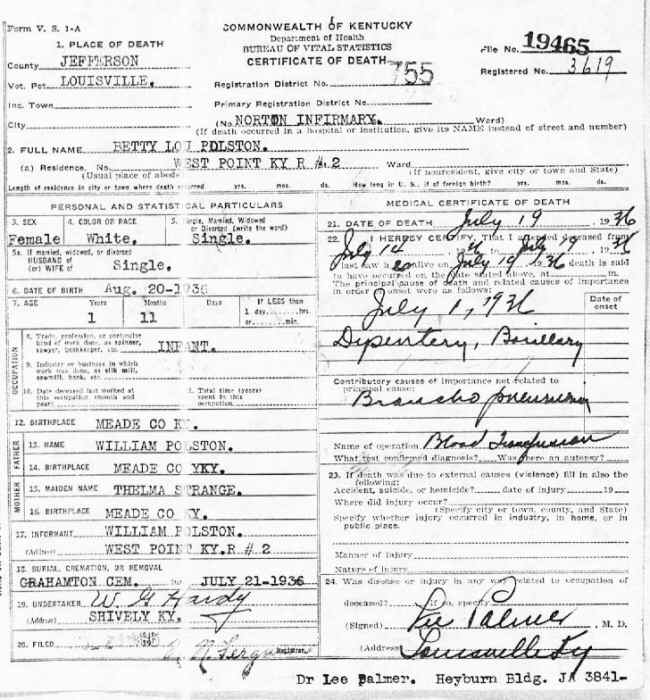 Form V. S. 1-A
COMMONWEALTH of KENTUCKY
Department of Health
BUREAU OF VITAL STATISTICS
CERTIFICATE OF DEATH
File No. 19465
Registered No. 3619
1. PLACE OF DEATH
County JEFFERSON
Vot. Pct LOUISVILLE.
Inc. Town
City
Registration District No. 755
Primary Registration District No.
(No. NORTON INFIRMARY. Ward)
(If death occurred in a hospital or institution, give its NAME instead of street and number)
2. FULL NAME BETTY LOU POLSTON.
(a) Residence. No. WEST POINT KY R # 2 Ward
(Usual place of abode) (If nonresident, give city or town and State)
Length of residence in city or town where death occurred yrs. mos. ds. How long in U. S., if of foreign birth? yrs. mos. ds.
PERSONAL AND STATISTICAL PARTICULARS
3. SEX 4. COLOR OR RACE 5. Single, Married, Widowed
or Divorced (write the word)
Female White. Single.
5a. If married, widowed, or divorced
HUSBAND of
(or) WIFE of Single.
6. DATE OF BIRTH Aug. 20-1936
7. AGE Years Months Days If LESS than
1 day, hrs.
or min.
1 11
OCCUPATION
8. Trade, profession, or particular
kind of work done, as spinner,
sawyer, bookkeeper, etc. INFANT.
9. Industry or business in which
work was done, as silk mill,
sawmill, bank, etc.
10. Date deceased last worked at
this occupation (month and
year)
Total time (years)
spent in this
occupation
12. BIRTHPLACE MEADE CO KY.
FATHER
13. NAME WILLIAM POLSTON.
14. BIRTHPLACE MEADE CO YKY.
MOTHER
15. MAIDEN NAME THELMA STRANGE.
16. BIRTHPLACE MEADE CO KY.
17. INFORMANT WILLIAM POLSTON.
(Address) WEST POINT KY.R # 2
18. BURIAL, CREMATION, OR REMOVAL
GRAHAMTON CEM. JULY 21-1936
19. UNDERTAKER W G Hardy
(Address) SHIVELY KY.
20. FILED
Registrar.
MEDICAL CERTIFICATE OF DEATH
21. DATE OF DEATH July 19 1936
22. I HEREBY CERTIFY, That I attended deceased from
July 14 to July 19, 1936
I last saw alive on July 19 1936 death is said
to have occurred on the date stated above, at m.
The principal cause of death and related causes of importance
in order of onset were as follows:
Date of
onset
July 1, 1936
Dysentery, Bacillary
Contributory causes of importance not related to
principal cause:
Broncho pneumonia
Name of operation Blood Transfusion
What test confirmed diagnosis? Was there an autopsy?
23. If death was due to external causes (violence) fill in also the
following:
Accident, suicide, or homicide? date of injury 19
Where did injury occur?
(Specify city or town, county, and State)
Specify whether injury occurred in industry, in home, or in
public place.
Manner of injury
Nature of injury
24. Was disease or injury in any way related to occupation of
deceased? If so, specify
(Signed) Lee Palmer M. D.
(Address) Louisville Ky
Dr Lee Palmer. Heyburn Bldg. JA 3841-